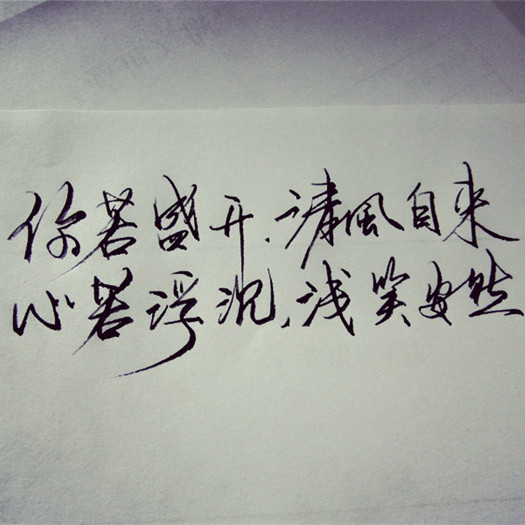 你若盛开,清風自来
心若浮沉,浅笑安然